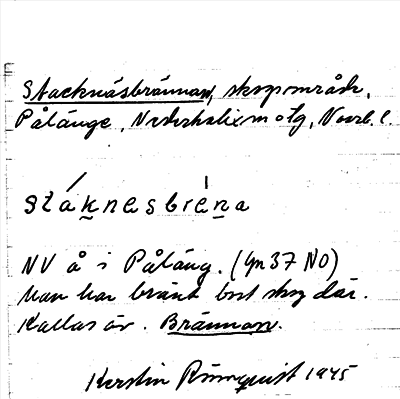 Stacknäsbrännan, skogsområde,
Pålänge, Nederkalix m o tg, Norrb. l.
stáknesbrena
NV å i Påläng. (Gn 37 NO)
Man har bränt bort skog där.
Kallas äv. Brännan.
Kerstin 1945